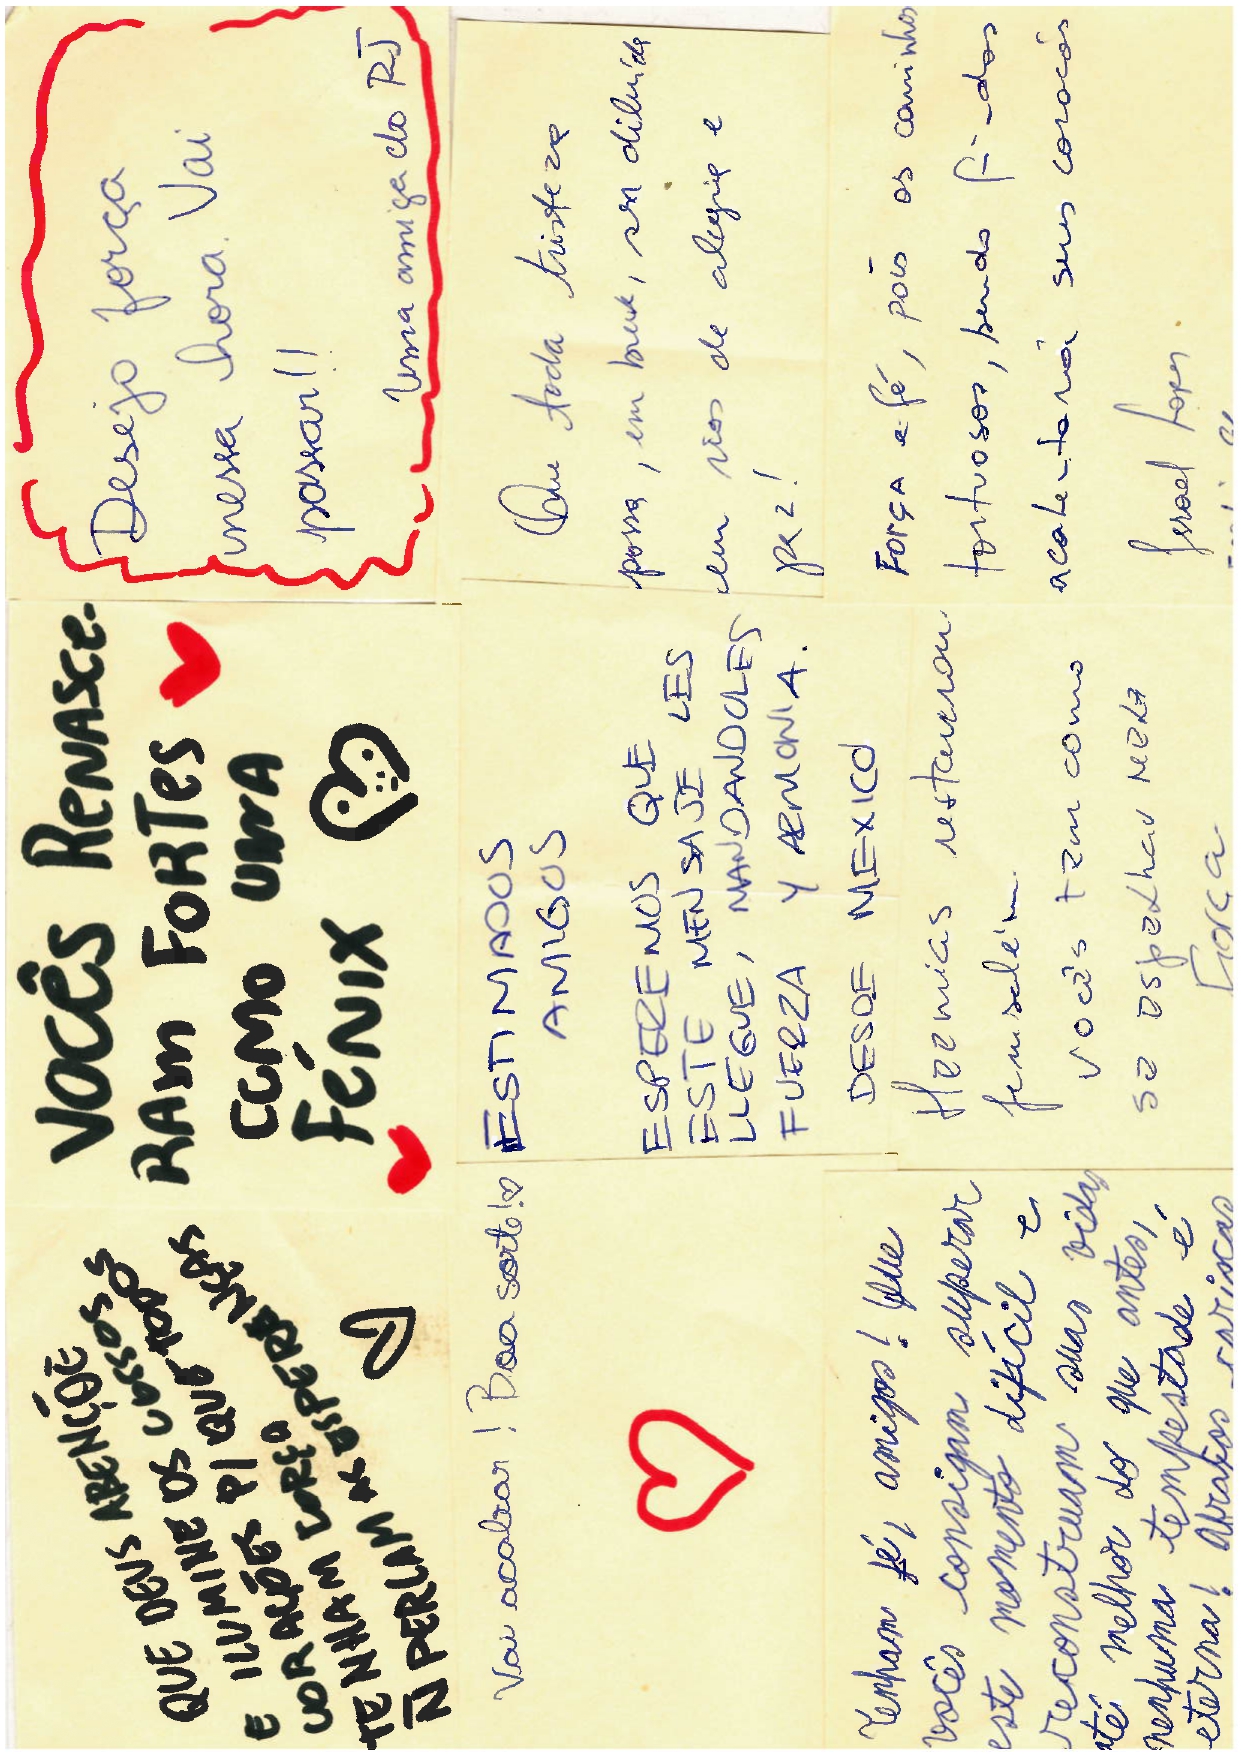 QUE DEUS ABENÇÕE
E ILUMINE OS
CORAÇÕES P/ QUE TODOS
TENHAM FORÇA
Ñ PERCAM AS ESPERENÇAS
VOCÊS RENASCE-
RAM FORTES
COMO UMA
FÉNIX
Desejo força
nessa hora. Vai
passar!!
Uma amiga do RJ
Vai acabar! Boa sorte!
ESTIMADOS
AMIGOS
ESPEREMOS QUE
ESTE MENSAJE LES
LLEGUE, MANDANDOLES
FUERZA Y ARMONIA.
DESDE MEXICO
Que toda tristeza
possa, em breve, ser diluída
em rios de alegria e
paz!
Tenham fé, amigos! Que
vocês consigam superar
este momento difícil e
reconstruam suas vidas
até melhor do que antes,
nenhuma tempestade é
eterna! Abraços cariocas
restaurou
Jerusalém.
Vocês tem como
se espelhar nele
Força
Força e fé, pois os caminhos
tortuosos, sendo findos
acalentará seus
Israel Lopes